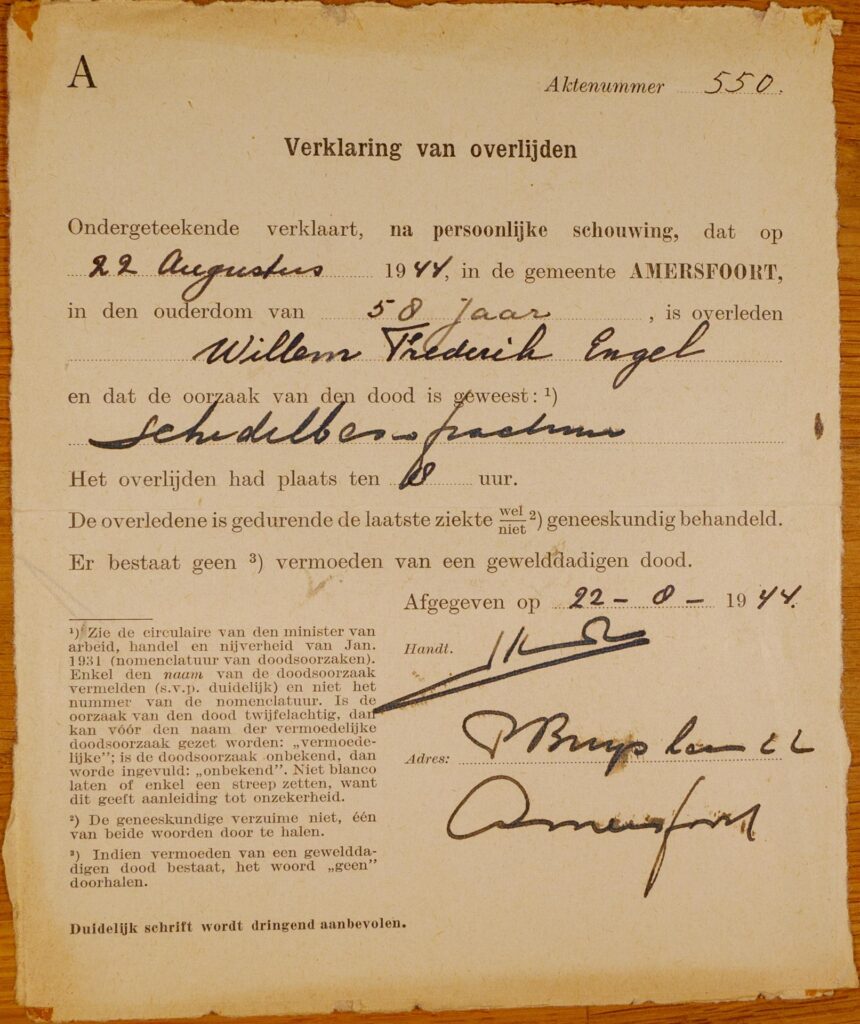 A
Aktenummer 550.
Verklaring van overlijden
Ondergeteekende verklaart, na persoonlijke schouwing, dat op
22 Augustus 1944, in de gemeente AMERSFOORT,
in den ouderdom van 58 jaar, is overleden
Willem Frederik Engel
en dat de oorzaak van den dood is geweest: ¹)
schedelbasisfractuur
Het overlijden had plaats ten 8 uur.
De overledene is gedurende de laatste ziekte wel/niet ²) geneeskundig behandeld.
Er bestaat geen ³) vermoeden van een gewelddadigen dood.
Afgegeven op 22-8-1944.
Handt.
Adres: P Buyslaan 22
Amersfoort
¹) Zie de circulaire van den minister van
arbeid, handel en nijverheid van Jan.
1931 (nomenclatuur van doodsoorzaken).
Enkel den naam van de doodsoorzaak
vermelden (s.v.p. duidelijk) en niet het
nummer van de nomenclatuur. Is de
oorzaak van den dood twijfelachtig, dan
kan vóór den naam der vermoedelijke
doodsoorzaak gezet worden: „vermoede-
lijke”; is de doodsoorzaak onbekend, dan
worde ingevuld: „onbekend”. Niet blanco
laten of enkel een streep zetten, want
dit geeft aanleiding tot onzekerheid.
²) De geneeskundige verzuime niet, één
van beide woorden door te halen.
³) Indien vermoeden van een geweldda-
digen dood bestaat, het woord „geen”
doorhalen.
Duidelijk schrift wordt dringend aanbevolen.